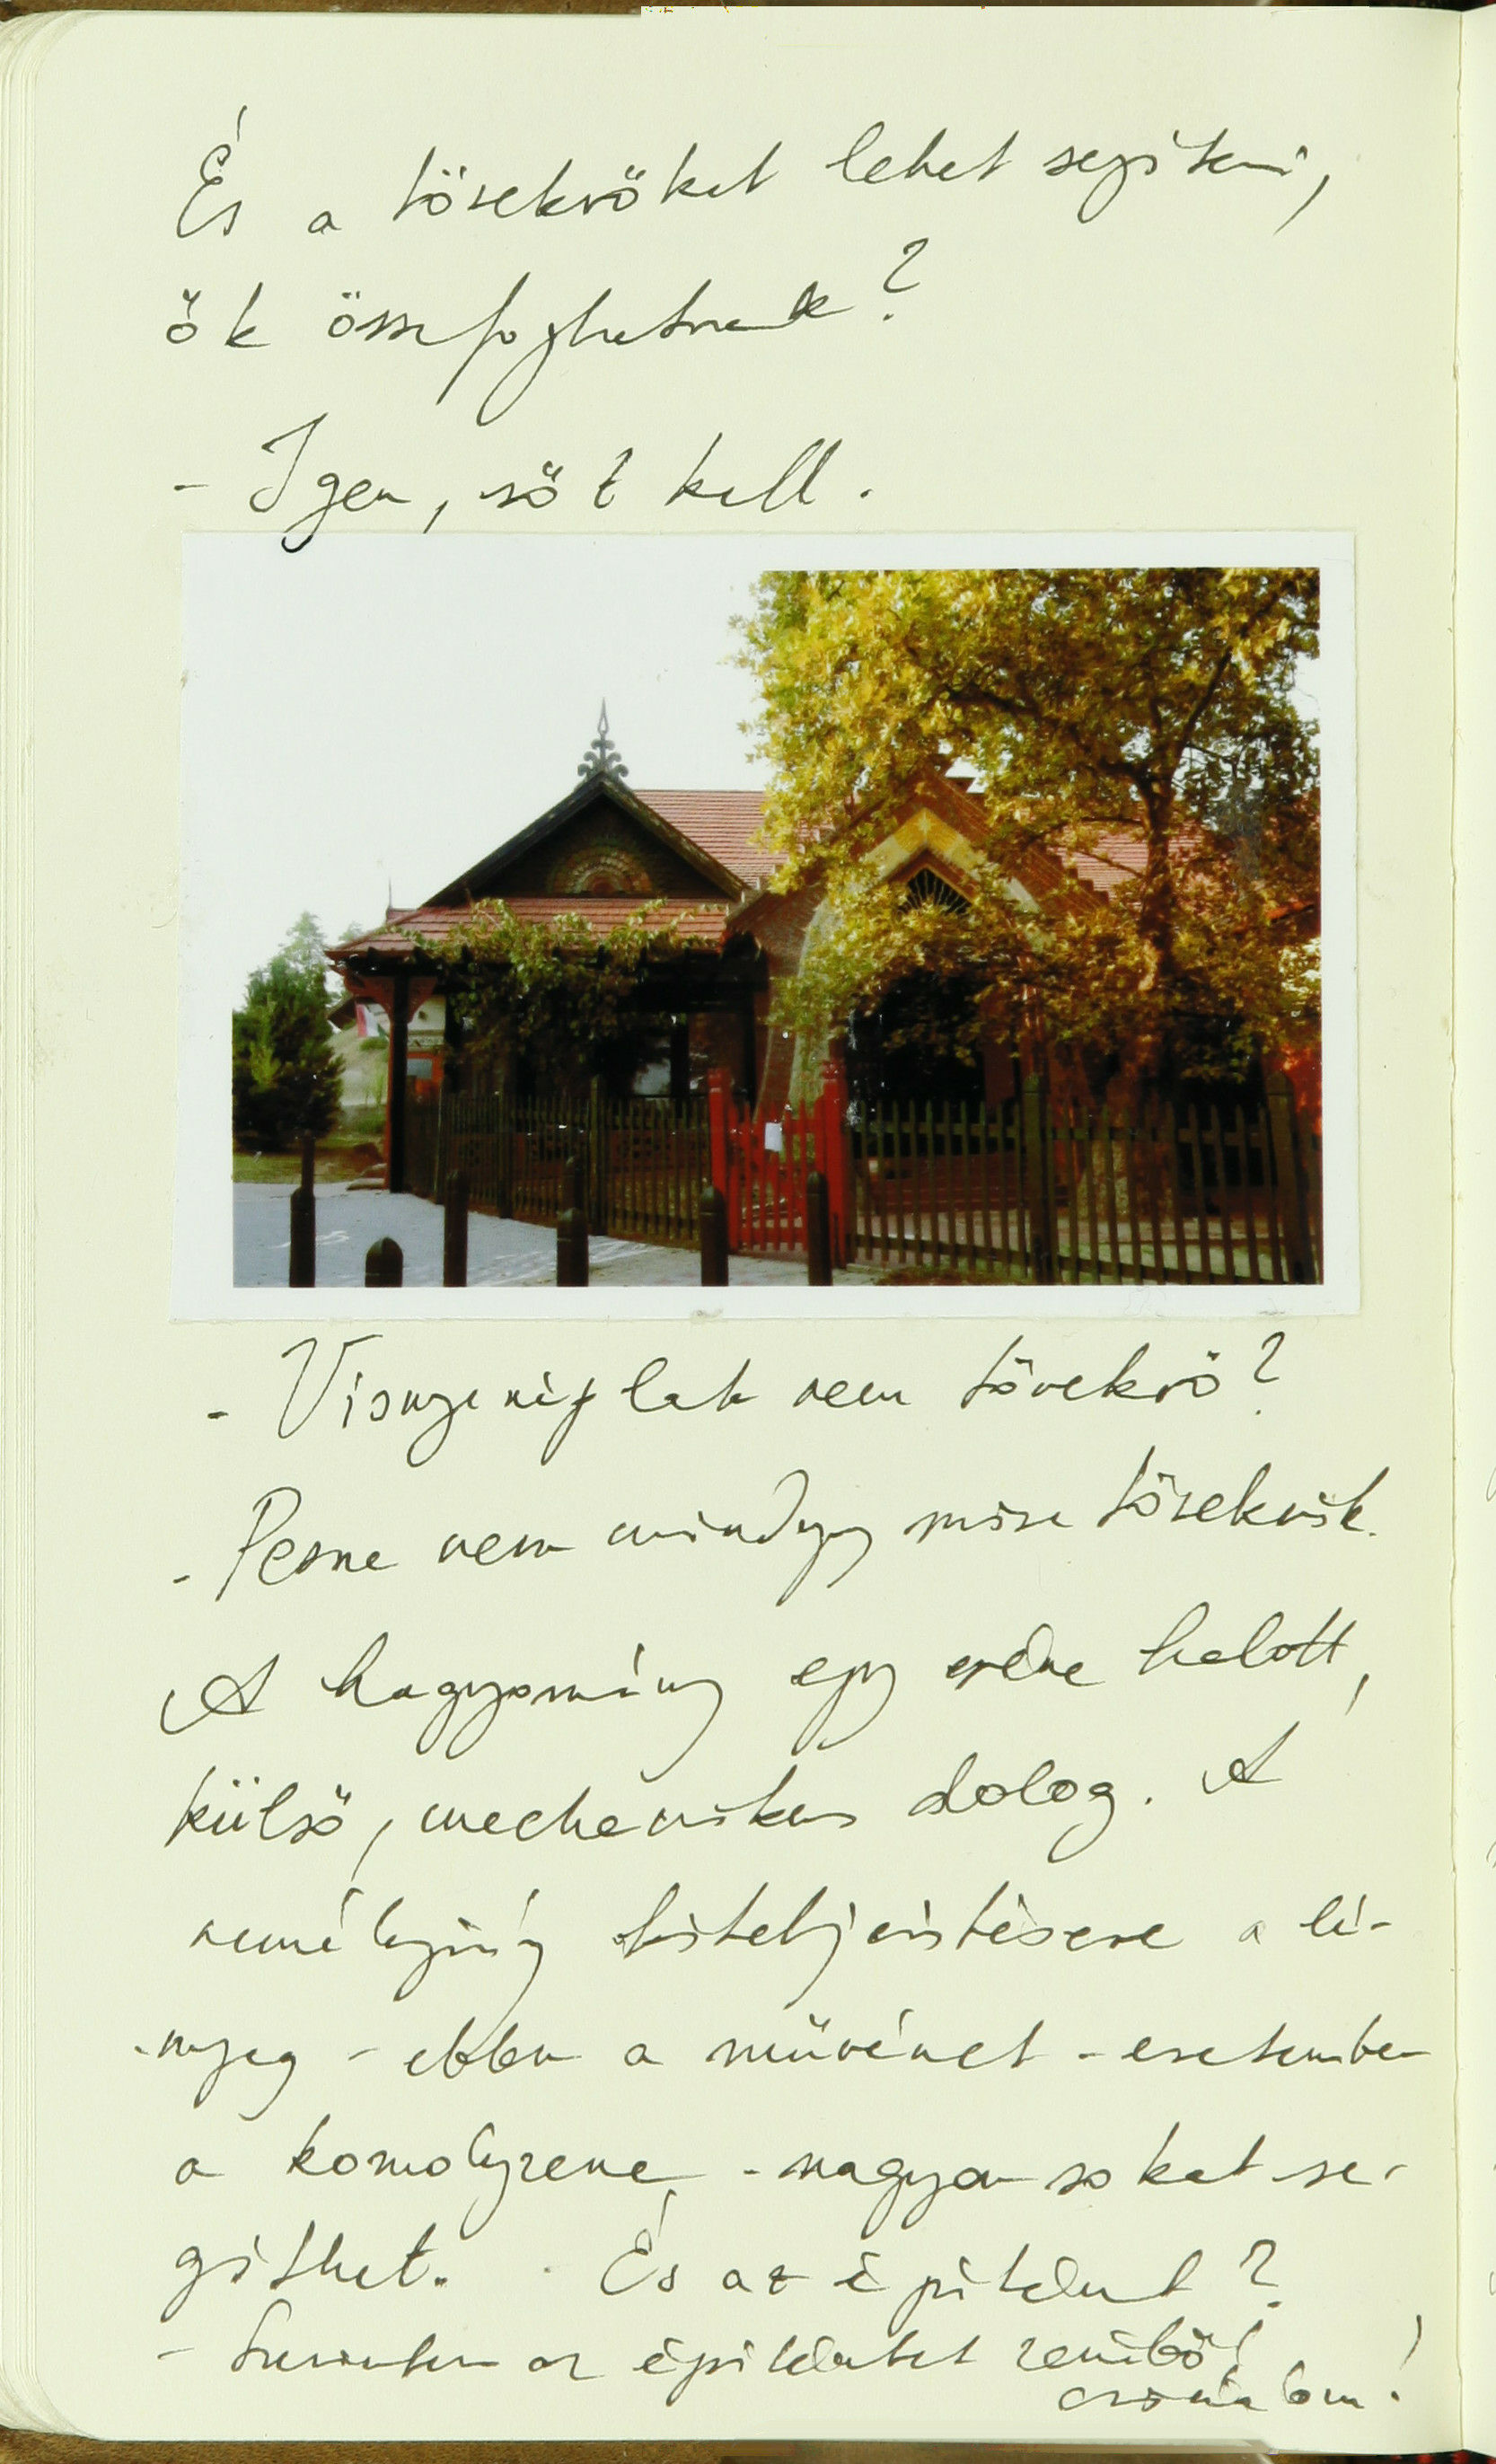 És a törekvőket lehet segíteni,
ők összefoghatnak?
- Igen, sőt kell.
- Viszont nem törekvő?
- Persze nem mindegy mire törekszik.
A hagyomány egy eleve halott,
külső, mechanikus dolog. A
személyiség kiteljesítésere a lé-
nyeg - ebben a művészet - esetemben
a komolyzene - nagyon sokat se-
gíthet. És az épületet?
- Szerintem az épületet zenéből
csináltam!